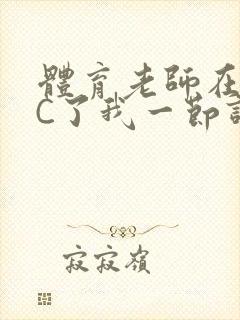 體育老師在
C了我一節
寂寂嶺